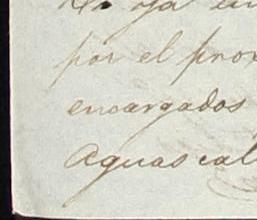 por el prox
encargados
Aguascal